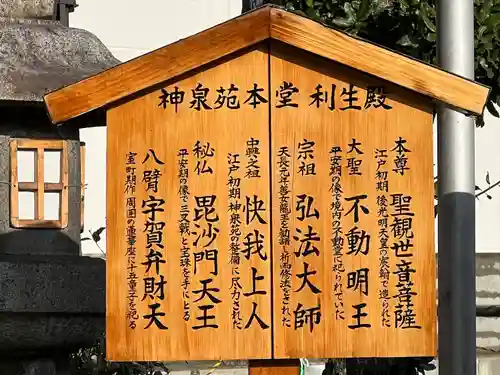 神泉苑本堂 利生殿
本尊 聖観世音菩薩
江戸初期 後光明天皇の で造像
大聖 不動明王
平安期の像で境内の不動堂に祀られていた
宗祖 弘法大師
天長元年善女龍王を勧請し祈雨修法をされた
中興之祖 快我上人
江戸初期の神泉苑の整備に尽力された
秘仏 毘沙門天王
平安期の像で三叉戟と宝珠を手にする
八臂 宇賀弁財天
室町期作 周囲の蓮華座に十五童子を祀る